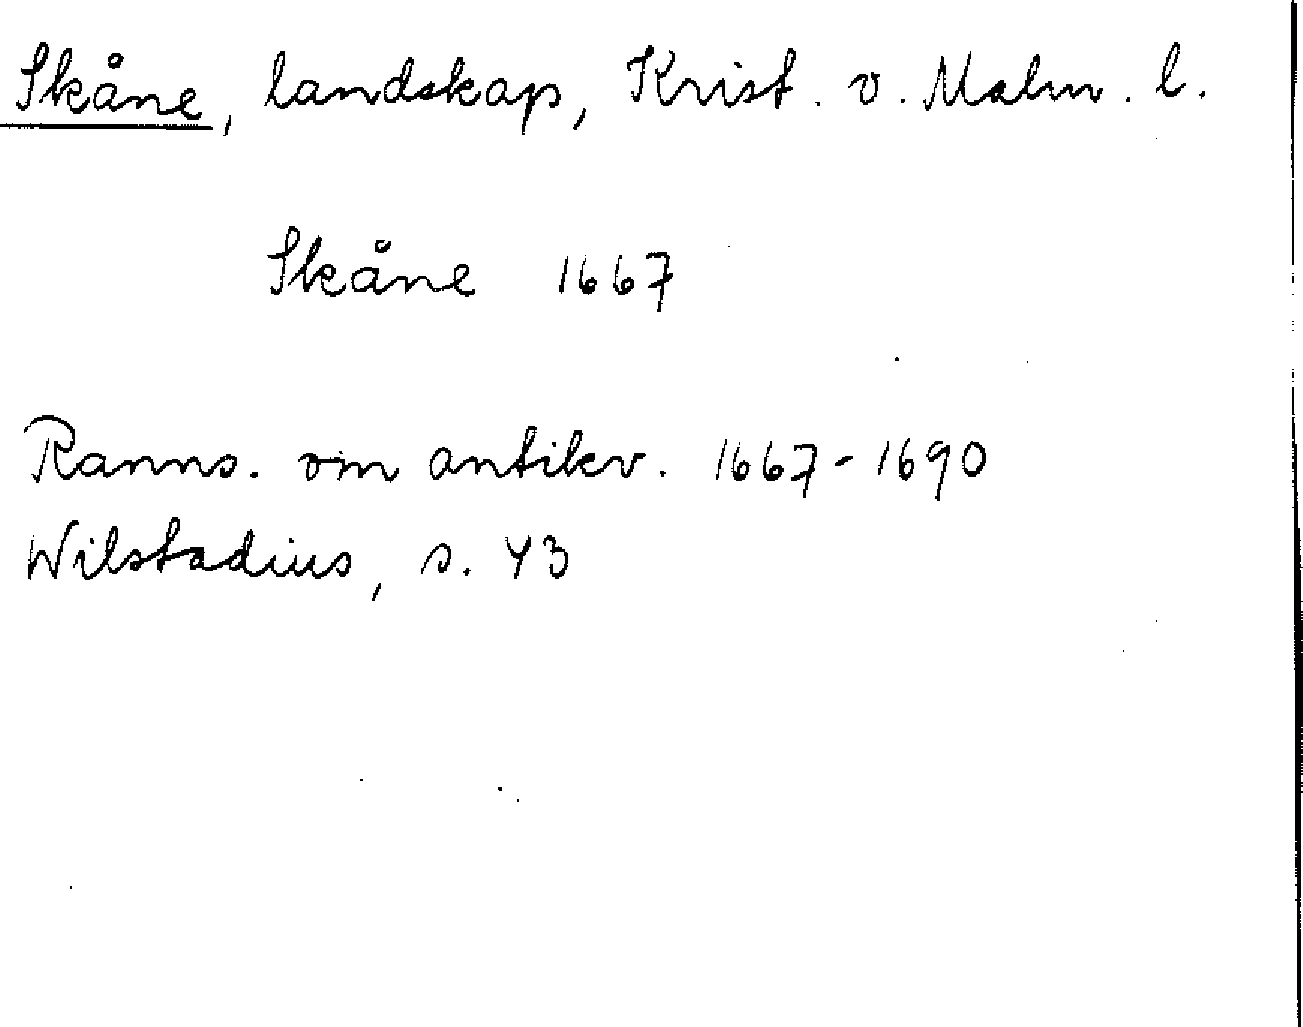 Skåne, landskap, Krist. o. Malm. l.
Skåne 1667
Ranns. om antikv. 1667-1690
Wilstadius, s. 43